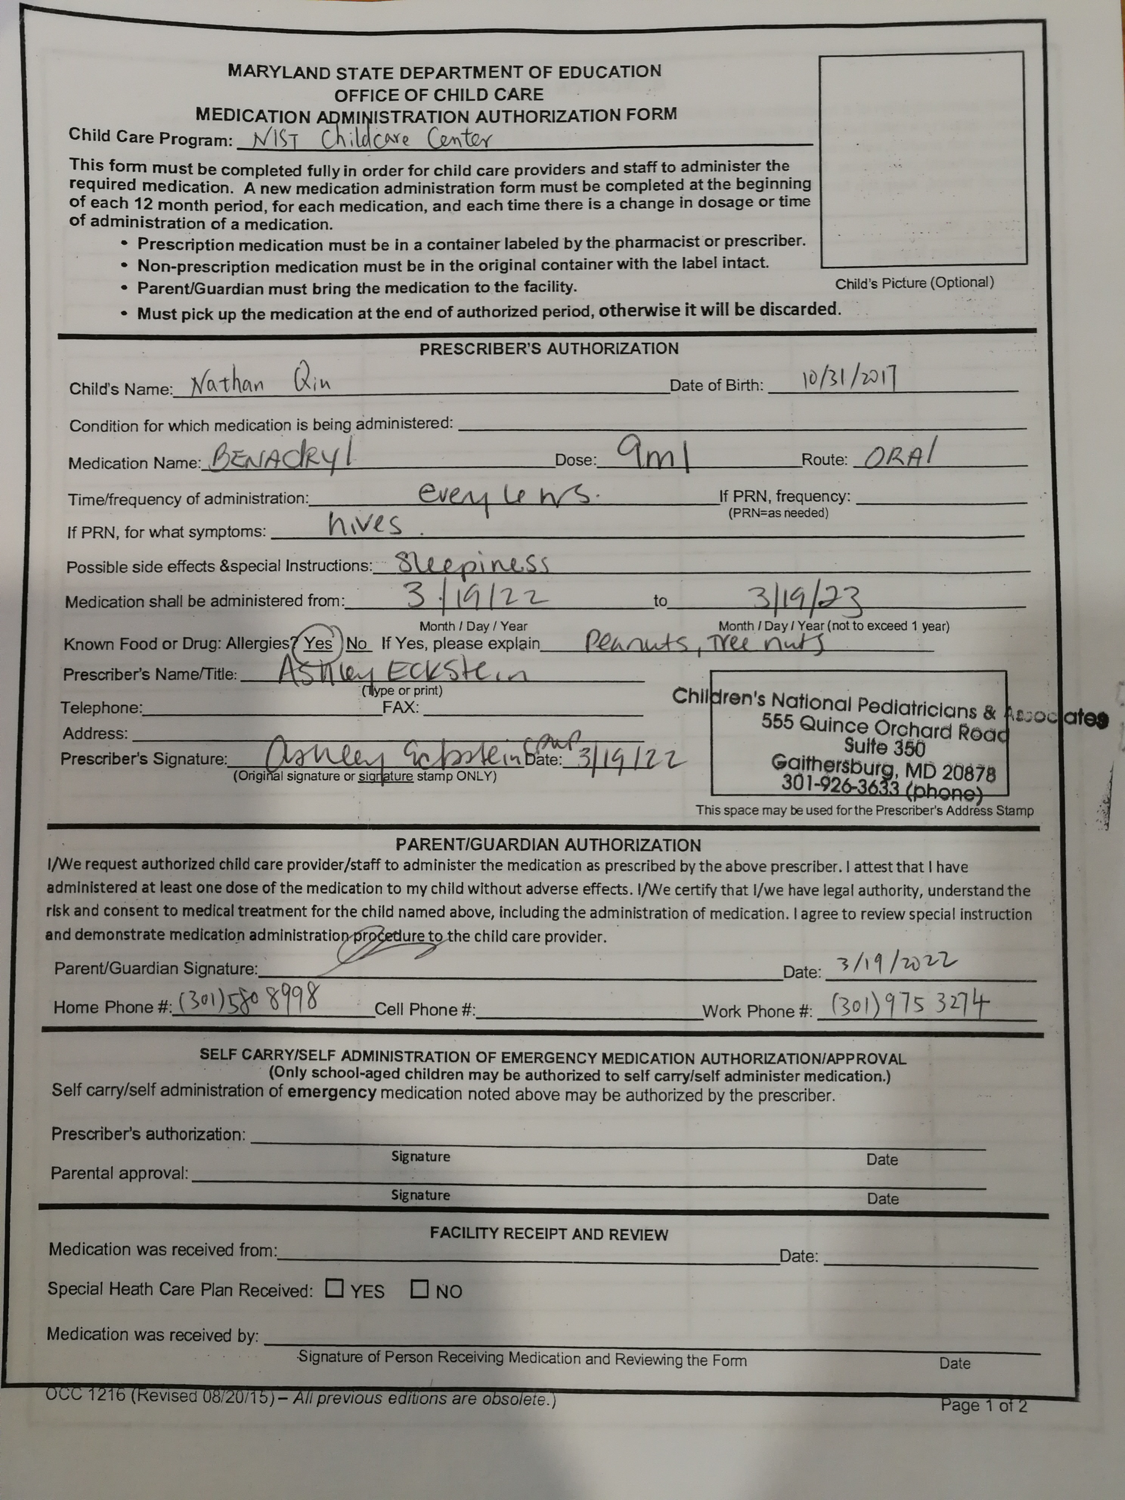 MARYLAND STATE DEPARTMENT OF EDUCATION
OFFICE OF CHILD CARE
MEDICATION ADMINISTRATION AUTHORIZATION FORM
Child Care Program: NIST Childcare Center
This form must be completed fully in order for child care providers and staff to administer the
required medication. A new medication administration form must be completed at the beginning
of each 12 month period, for each medication, and each time there is a change in dosage or time
of administration of a medication.
• Prescription medication must be in a container labeled by the pharmacist or prescriber.
• Non-prescription medication must be in the original container with the label intact.
• Parent/Guardian must bring the medication to the facility.
• Must pick up the medication at the end of authorized period, otherwise it will be discarded.
Child's Picture (Optional)
PRESCRIBER'S AUTHORIZATION
Child's Name: Nathan Qin Date of Birth: 10/31/2017
Condition for which medication is being administered:
Medication Name: BENADRYl Dose: 9ml Route: ORAl
Time/frequency of administration: every 6 hrs. If PRN, frequency:
(PRN=as needed)
If PRN, for what symptoms: hives.
Possible side effects &special Instructions: Sleepiness
Medication shall be administered from: 3/19/22 to 3/19/23
Month / Day / Year Month / Day / Year (not to exceed 1 year)
Known Food or Drug: Allergies? Yes No If Yes, please explain Peanuts, Tree nuts
Prescriber's Name/Title: Ashley Eckstein
(Type or print)
Telephone: FAX:
Address:
Prescriber's Signature: Ashley Eckstein CPNP Date: 3/19/22
(Original signature or signature stamp ONLY)
Children's National Pediatricians & Associates
555 Quince Orchard Road
Suite 350
Gaithersburg, MD 20878
301-926-3633 (phone)
This space may be used for the Prescriber's Address Stamp
PARENT/GUARDIAN AUTHORIZATION
I/We request authorized child care provider/staff to administer the medication as prescribed by the above prescriber. I attest that I have
administered at least one dose of the medication to my child without adverse effects. I/We certify that I/we have legal authority, understand the
risk and consent to medical treatment for the child named above, including the administration of medication. I agree to review special instruction
and demonstrate medication administration procedure to the child care provider.
Parent/Guardian Signature: Date: 3/19/2022
Home Phone #: (301)580 8998 Cell Phone #: Work Phone #: (301)975 3274
SELF CARRY/SELF ADMINISTRATION OF EMERGENCY MEDICATION AUTHORIZATION/APPROVAL
(Only school-aged children may be authorized to self carry/self administer medication.)
Self carry/self administration of emergency medication noted above may be authorized by the prescriber.
Prescriber's authorization:
Signature Date
Parental approval:
Signature Date
FACILITY RECEIPT AND REVIEW
Medication was received from: Date:
Special Heath Care Plan Received: ☐ YES ☐ NO
Medication was received by:
Signature of Person Receiving Medication and Reviewing the Form Date
OCC 1216 (Revised 08/20/15) – All previous editions are obsolete.)
Page 1 of 2